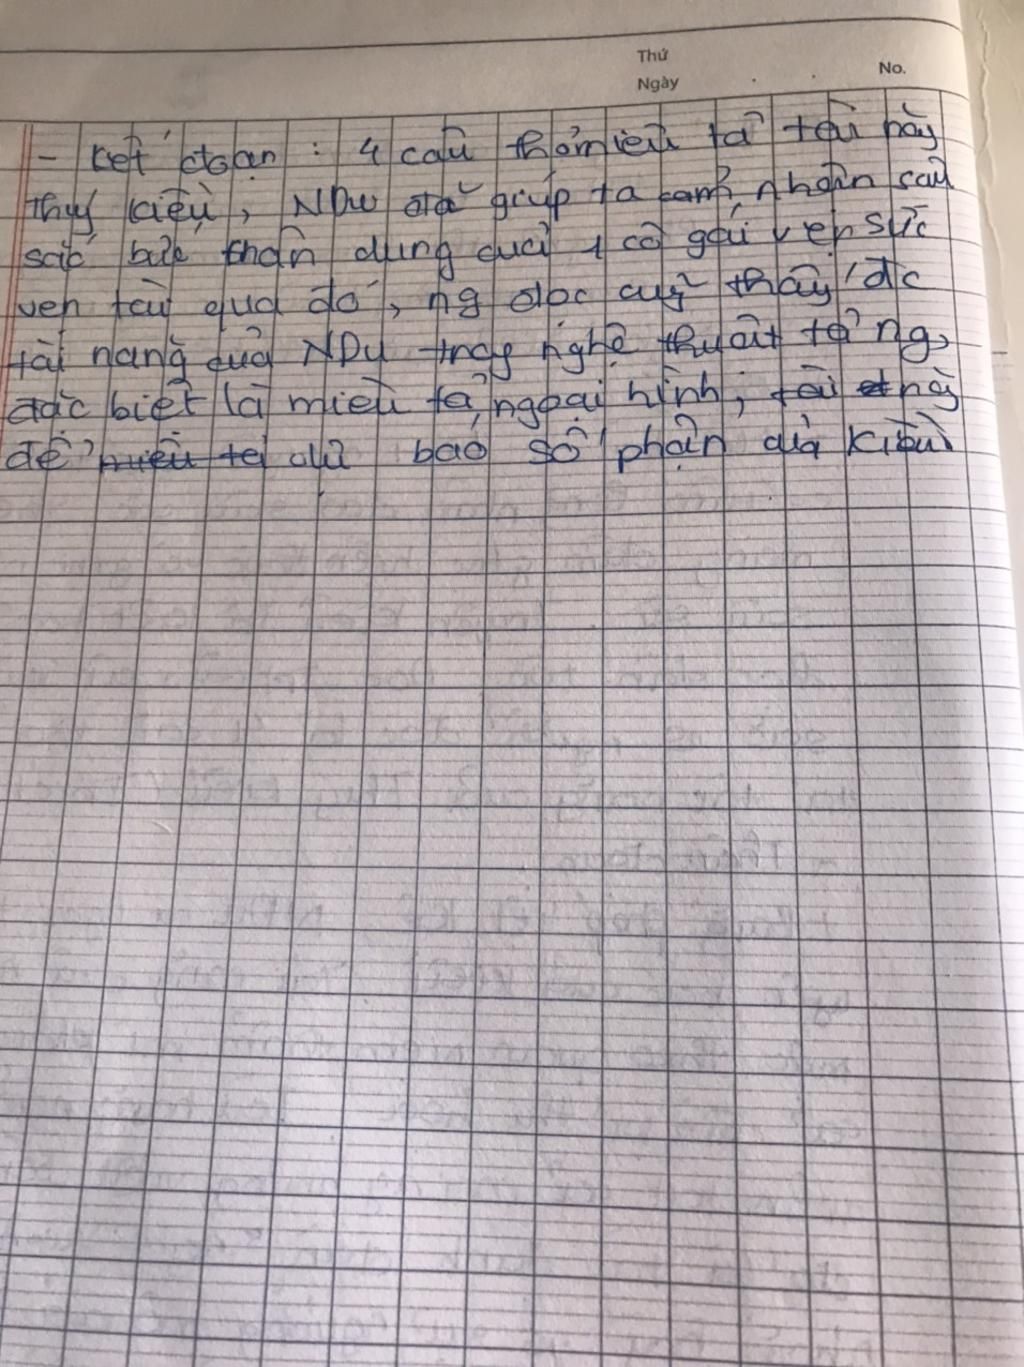 Thứ
Ngày . . No.
- Kết đoạn : 4 câu thơ miêu tả tài
Thuý Kiều, NDu đã giúp ta cảm nhận sâu
sắc bức chân dung của 1 cô gái vẹn sắc
vẹn tài qua đó, ng đọc cũng thấy đc
tài năng của NDu trog nghệ thuật tả ng,
đặc biệt là miêu tả ngoại hình, tài
để miêu tả dự báo số phận của Kiều